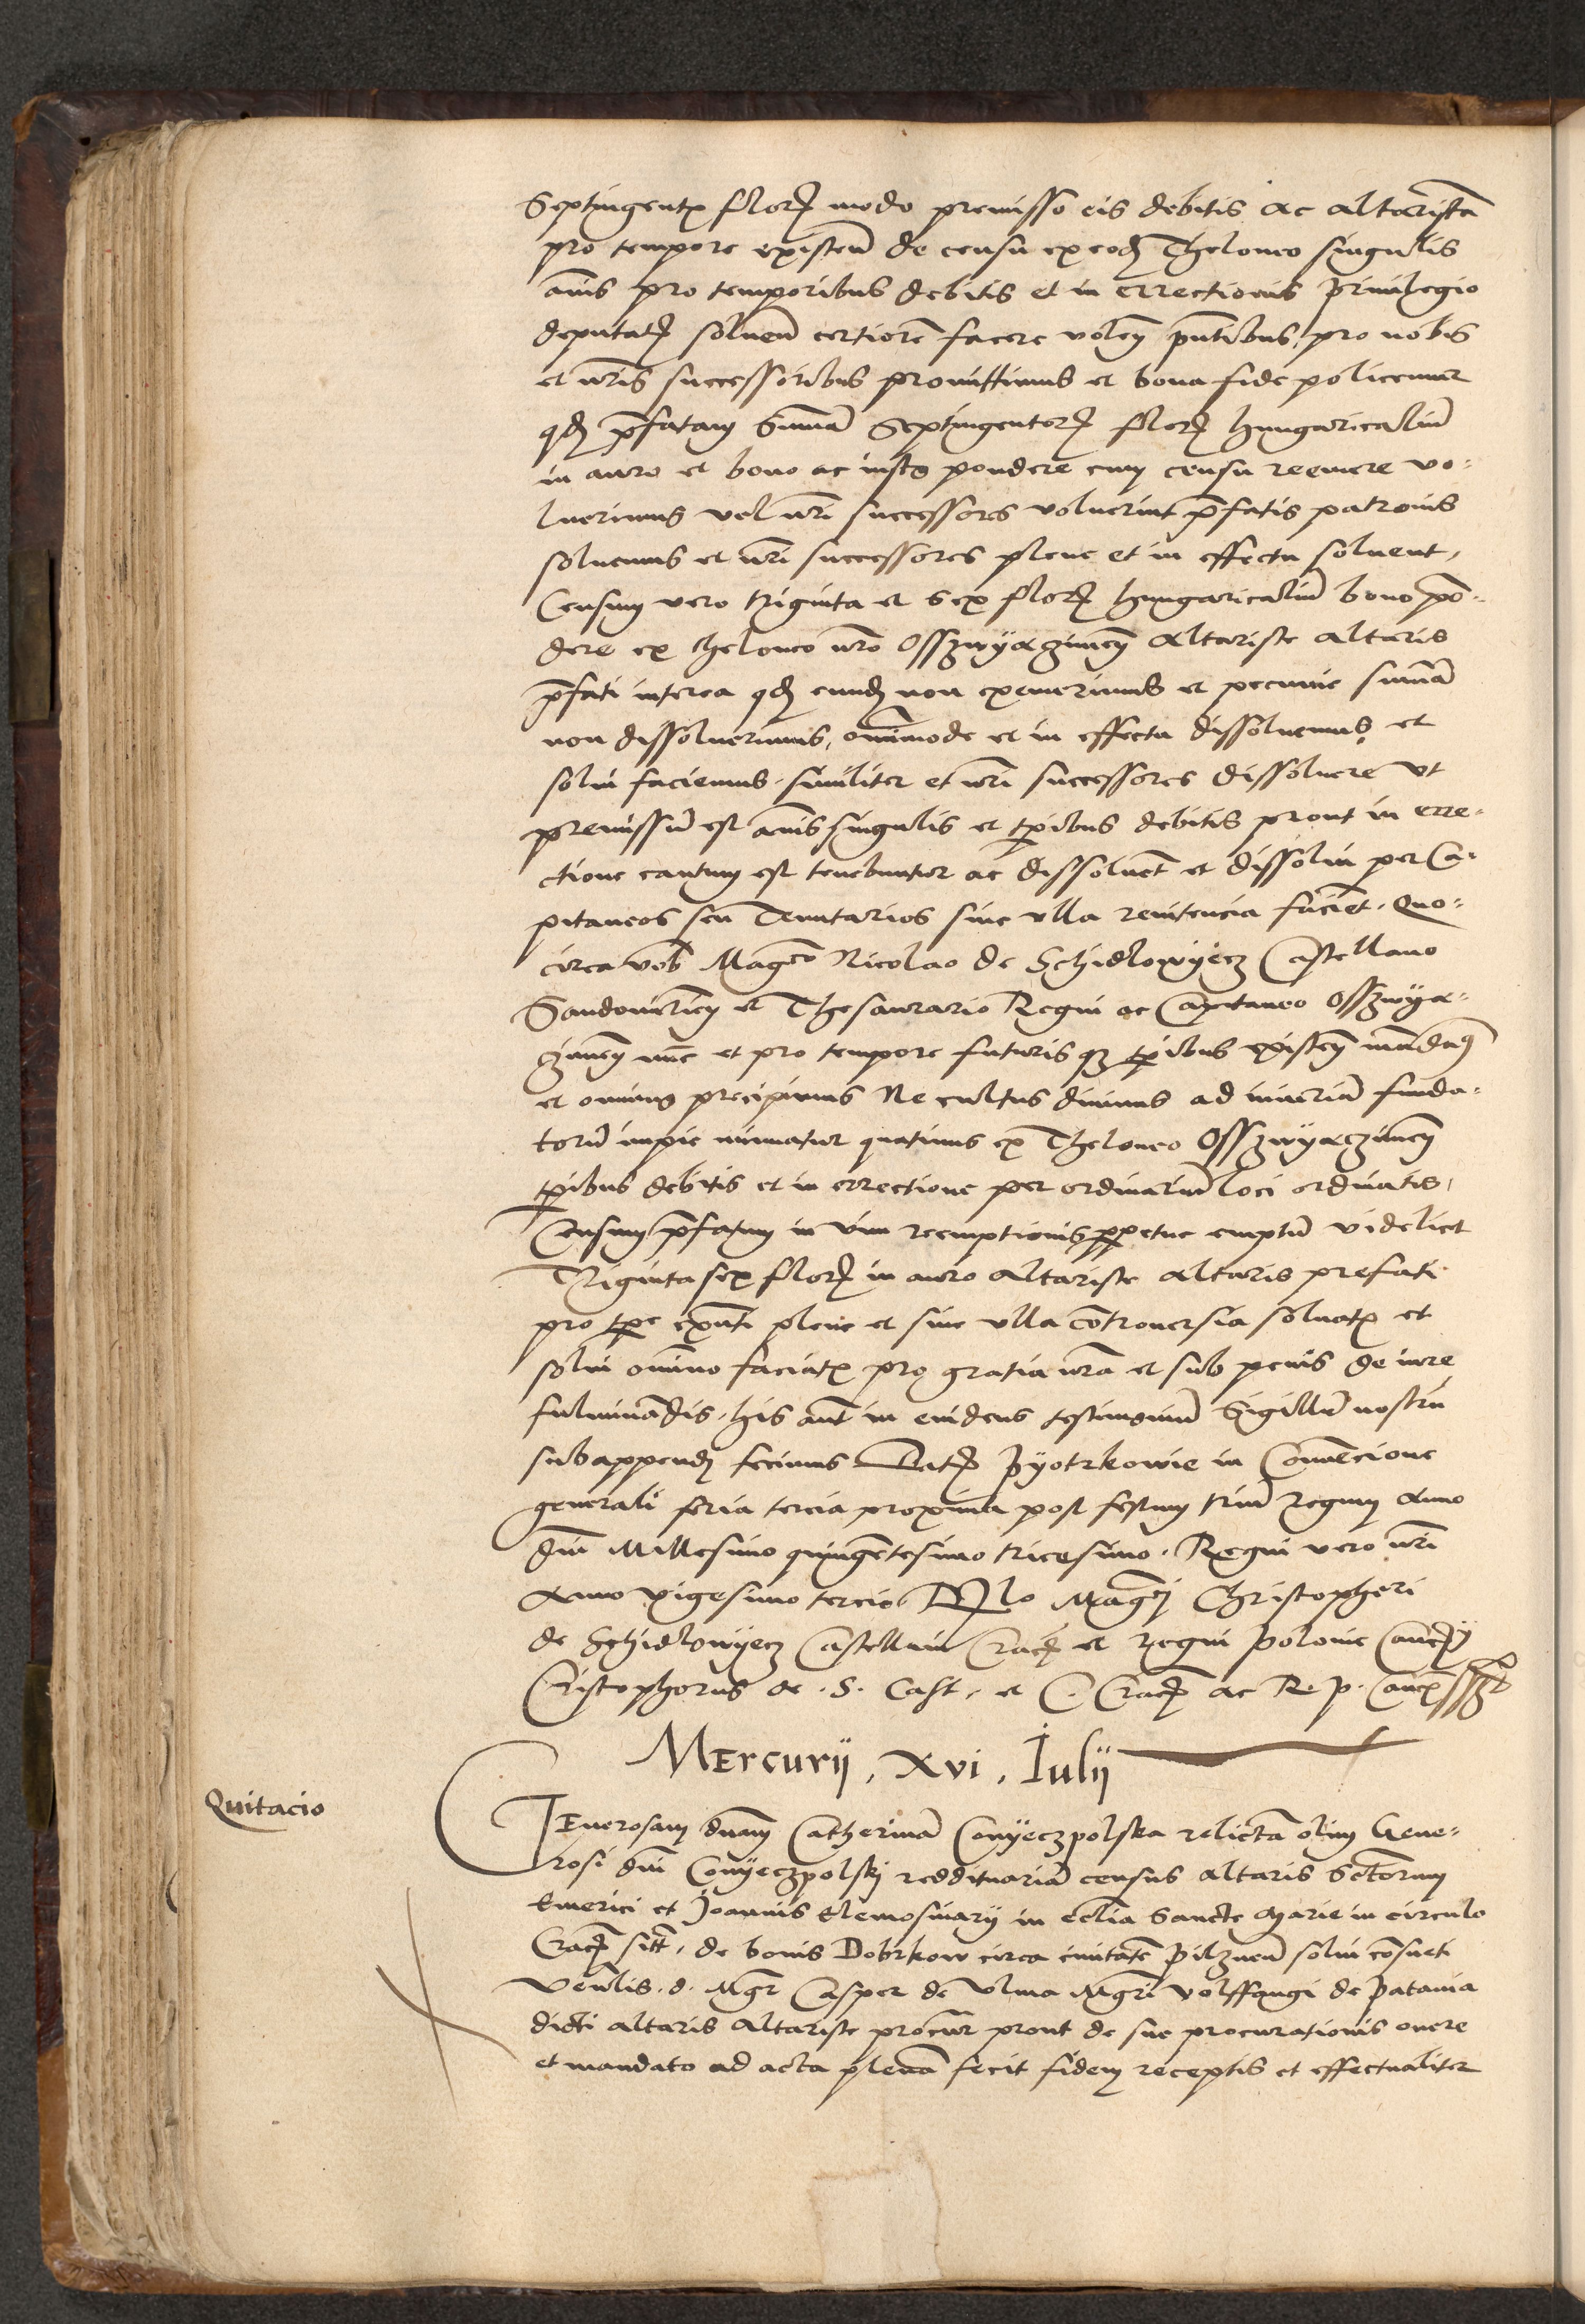 Septingentis florenorum modo premisso eis debitis ac altaristam
pro tempore existentem de censu ex eodem Theloneo singulis
annis pro temporibus debitis et in errectionis privilegio
deputatis solvendum certiorem facere volentes presentibus pro nobis
et nostris successoribus promittimus et bona fide policemur
quod prefatam summam Septingentorum florenorum hungaricalium
in auro et bono ac iusto pondere cum censu reemere vo:
luerimus vel nostri successores voluerint prefatis patronis
solvemus et nostri successores plene et in effectu solvent,
Censum vero triginta et sex florenorum hungaricalium bono pon:
dere ex theloneo nostro Osszwyaczimensi Altariste altaris
prefati interea quod eundem non exemerimus et pecunie summam
non dissolverimus, omnimode et in effectu dissolvemus et
solvi faciemus. similiter et nostri successores dissolvere ut
premissum est annis singulis et temporibus debitis prout in erre:
ctione cautum est tenebuntur ac dissolvent et dissolvi per Ca:
pitaneos seu Tenutarios sine ulla renitencia facient. Quo:
circa vobis Magnifico Nicolao de Schidlowyecz Castellano
Sandomiriensi et Thesaurario Regni ac Capitaneo Osszwya:
czimensi nunc et pro tempore futurisque temporibus existentibus mandamus
et omnino precipimus Ne cultus divinus ad iniuriam funda:
torum impie minuatur quatinus ex Theloneo Osszwyaczimensi
temporibus debitis et in errectione per ordinarium loci ordinatis,
Censum prefatum in vim reemptionis perpetue emptum videlicet
Triginta sex florenorum in auro altariste altaris prefati
pro tempore existenti plene et sine ulla controversia solvatis et
solvi omnino faciatis pro gratia nostra et sub penis de iure
fulminandis. his autem in evidens testimonium Sigillum nostrum
subappendi fecimus Datum Pyotrkowie in Convencione
generali feria tercia proxima post festum trium Regum Anno
domini Millesimo quingentesimo tricesimo. Regni vero nostri
Anno vigesimo tercio Relatio Magnifici Christopheri
de Schidlowyecz Castellani Cracoviensis et Regni Polonie Cancellarii
Cristophorus de .S. Cast. et C. Cracoviensis ac R. P. Cancellarius sst
Mercurij, xvi, Iulij
Quitacio
GEnerosam dominam Catherinam Conyeczpolska relictam olim Gene:
rosi domini Conyeczpolskj reddituariam census altaris Sanctorum
Emerici et Joannis Elemosinarij in ecclesia Sancte Marie in circulo
Cracoviensi sitti, de bonis Dobrkow circa civitatem Pilznensem solvi consueti
Venerabilis. d. Magister Casper de Ulma Magistri Volffangi de Patavia
dicti altaris Altariste procurator prout de sue procurationis onere
et mandato ad acta plenam fecit fidem receptis et effectualiter